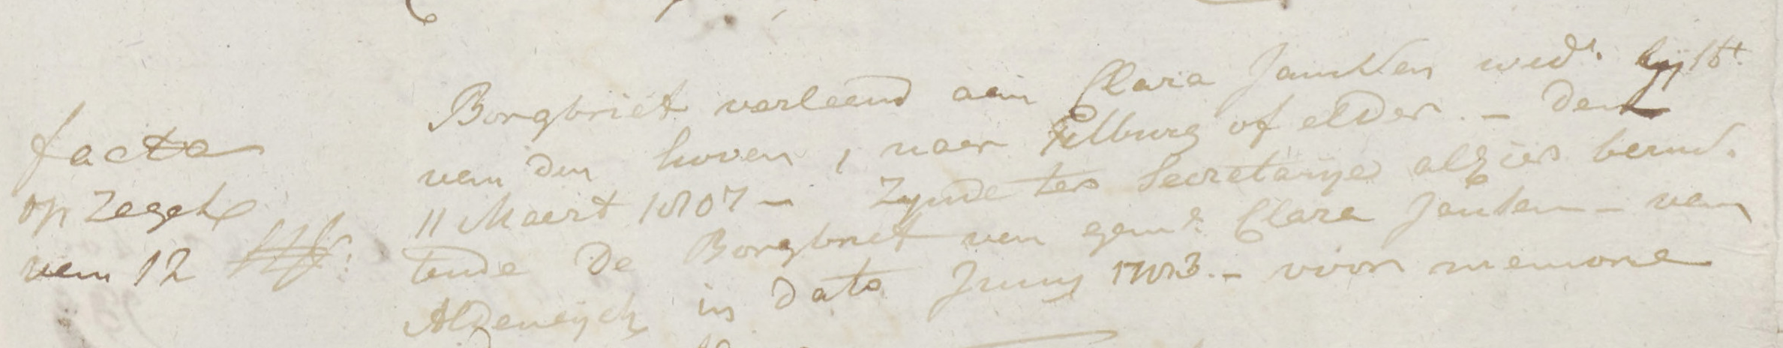 facta
op zegel
van 12
Borgbrief verleend aan Clara Janssen wed.
van den hoven, naer Tilburg of elder. – den
11 Maert 1807 – Zynde ter Secretarye alhier berus-
tende de Borgbrief van gem. Clara Jansen – van
Aldeneyck in dato Juny 1783. – voor memorie